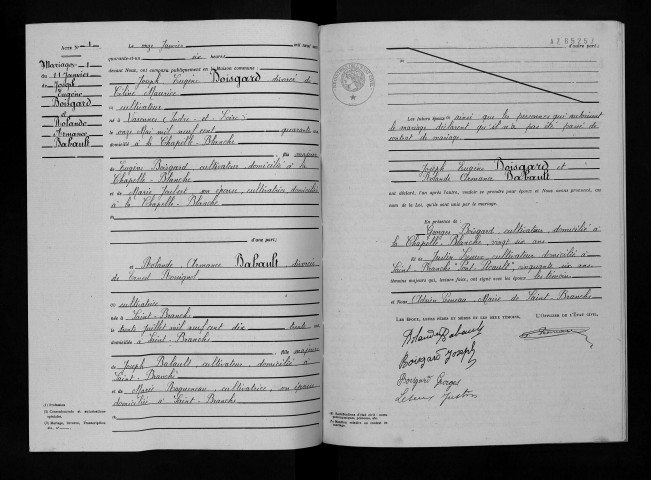 Acte N° 1
Mariages 1
du 11 Janvier
de Joseph
Eugène
Boisgard
et
Rolande
Clemance
Babault
Le onze Janvier mil neuf cent
quarante-et-un heures
devant Nous, ont comparu publiquement en la Maison commune :
Joseph Eugène Boisgard divorcé de
Céline Maurice
(1) cultivateur
né à Varennes (Indre-et-Loire)
le onze Mai mil neuf cent quarante ans
domicilié à la Chapelle-Blanche
fils majeur
de Eugène Boisgard, cultivateur domicilié à la
Chapelle-Blanche
et de Marie son épouse, cultivatrice domiciliée
à la Chapelle-Blanche
d'une part;
Rolande Clemance Babault divorcée
de Ernest
(1) cultivatrice
née à Saint-Branchs
le trente Juillet mil neuf cent dix trente ans
domiciliée à Saint-Branchs
fille majeure
de Joseph Babault, cultivateur, domicilié à
Saint-Branchs
et de Marie Ragueneau, cultivatrice, son épouse
domiciliée à Saint-Branchs
(1) Profession
d'autre part;
Les futurs époux ainsi que les personnes qui autorisent
le mariage déclarent qu'il n'a pas été passé de
contrat de mariage.
Joseph Eugène Boisgard et
Rolande Clemance Babault
ont déclaré, l'un après l'autre, vouloir se prendre pour époux et Nous avons prononcé, au
nom de la Loi, qu'ils sont unis par le mariage.
En présence de :
Georges Boisgard, cultivateur domicilié à
la Chapelle-Blanche, vingt six ans
Et de Justin Lesueur, cultivateur domicilié à
Saint-Branchs cinquante six ans
témoins majeurs qui, lecture faite, ont signé avec les époux les témoins
et Nous Maire de Saint-Branchs
Les époux, leurs pères et mères et les deux témoins, L'Officier de l'État civil,
Rolande Babault
Boisgard Joseph
Boisgard Georges
Justin